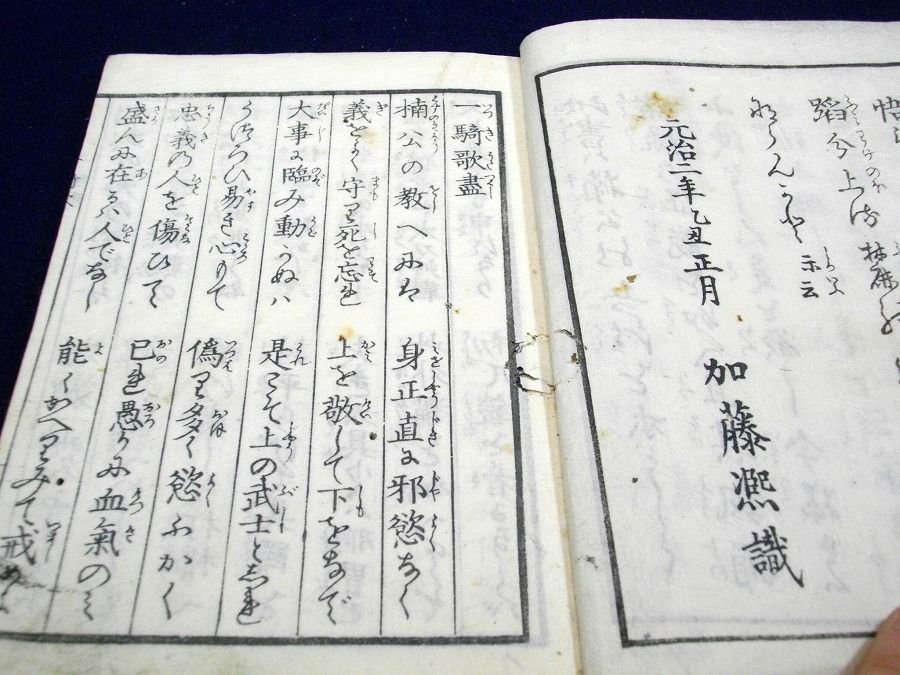 悟
蹈分上る麓の
ならんかと 云
元治二年乙丑正月
加藤凞識
一騎歌盡
楠公の教へには 身正直に邪慾なく
義をよく守り死を忘れ 上を敬して下をなで
大事に臨み動かぬハ 是こそ上の武士としれ
うつろひ易き心もて 偽り多く慾ふかく
忠義の人を傷ひて 已れ愚かに血氣のミ
盛んに在るハ人でなし 能くかへりみて戒めよ